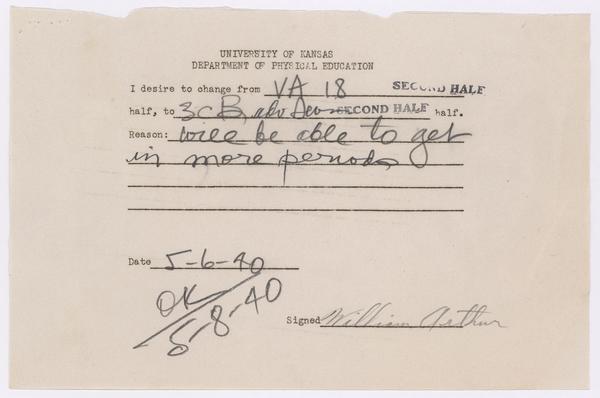 UNIVERSITY OF KANSAS
DEPARTMENT OF PHYSICAL EDUCATION
I desire to change from VA 18 SECOND HALF
half, to 3CB, adv SECOND HALF half.
Reason: will be able to get
in more periods
Date 5-6-40
OK
5-8-40
Signed William Arthur